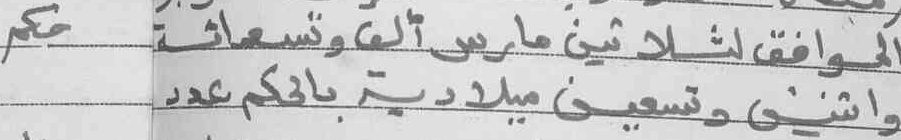 الموافق لثلاثين مارس ألف وتسعمائة حكم
واثنين وتسعين ميلادية بالحكم عدد